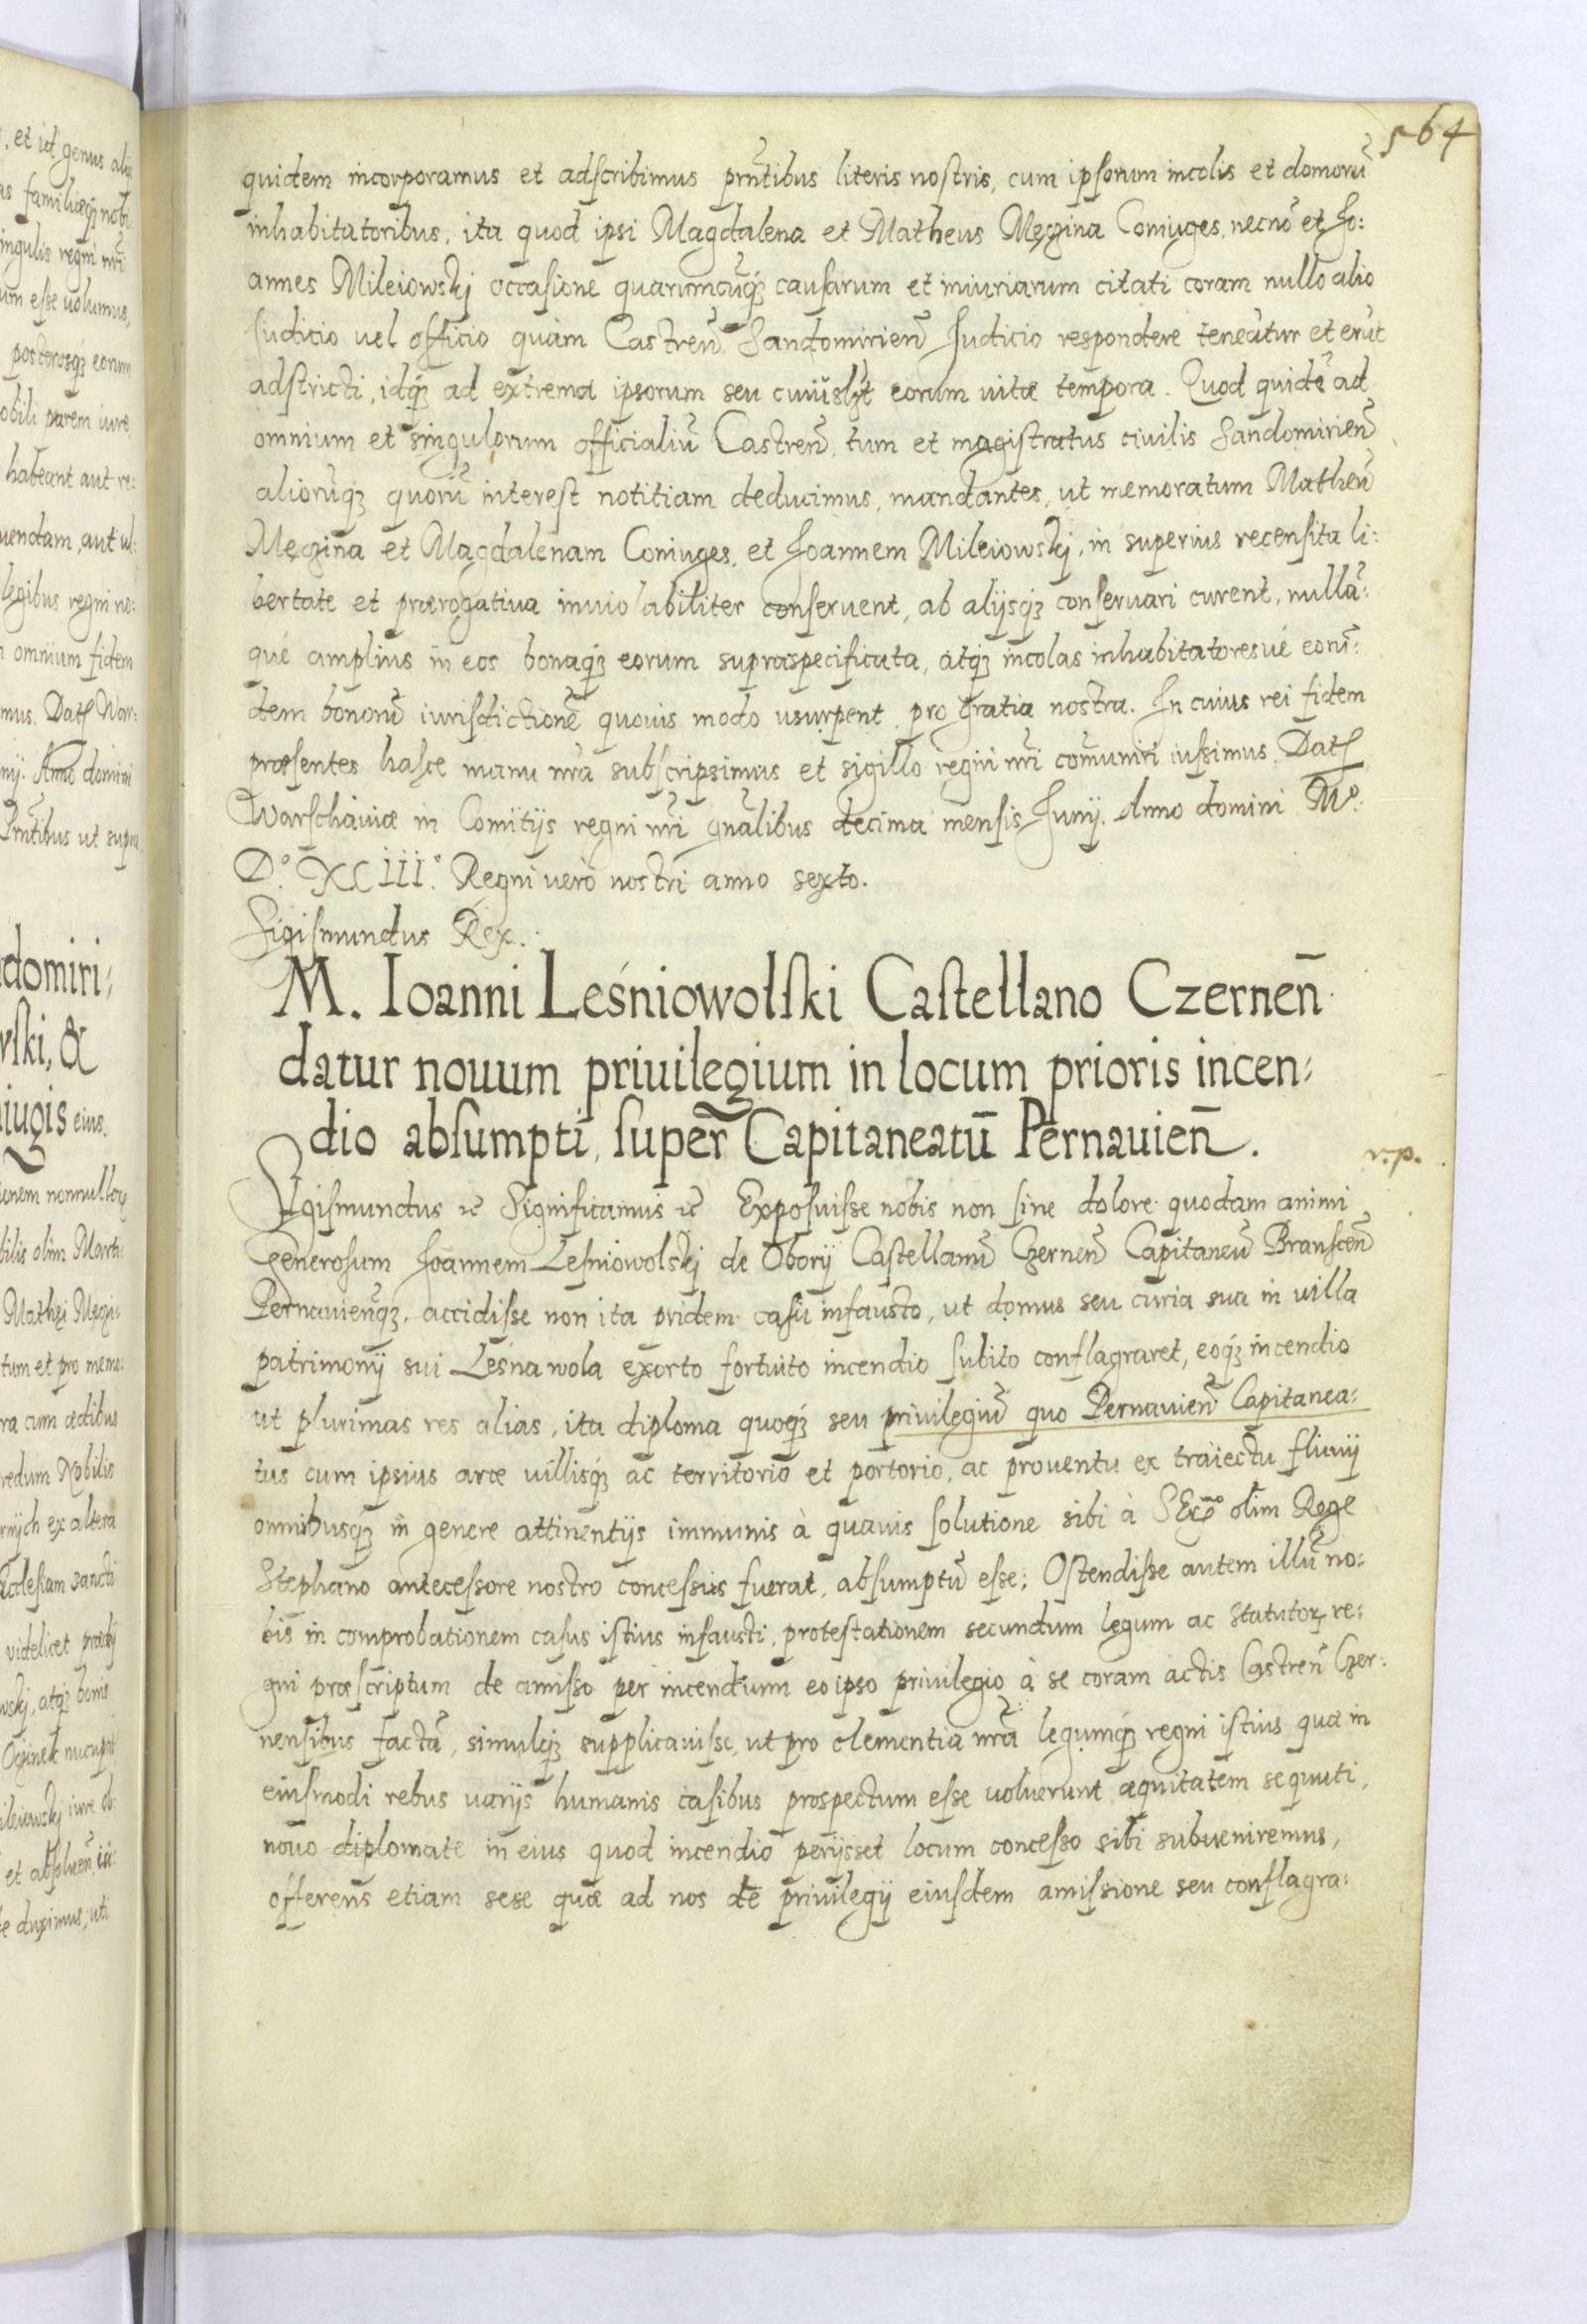 564
quidem incorporamus et adscribimus prñtibus literis nostris, cum ipsorum incolis et domorũ
inhabitatoribus, ita quod ipsi Magdalena et Matheus Męzina Coniuges, necnõ et Jo:
annes Mileiowskj occasione quarumcũq́ꝫ causarum et iniuriarum citati coram nullo alio
Judicio uel officio quàm Castreñ Sandomirieñ Judicio respondere teneãtur et erũt
adstricti, idq́ꝫ ad extrema ipsorum seu cuiuslʒt eorum uitæ tempora. Quod quidẽ ad
omnium et singulorum officialiũ Castreñ, tum et magistratus ciuilis Sandomirieñ
aliorũq́ꝫ quorũ interest notitiam deducimus, mandantes, ut memoratum Matheũ
Męzina et Magdalenam Coniuges, et Joannem Mileiowskj, in superius recensita li:
bertate et prærogatiua inuiolabiliter conseruent, ab alijsq́ꝫ conseruari curent, nullã:
qué amplius in eos bonaq́ꝫ eorum supraspecificata, atq́ꝫ incolas inhabitatoresué eorũ:
dem bonorũ iurisdictionẽ quouis modo usurpent, pro gratia nostra. In cuius rei fidem
præsentes hasce manu nr̃a subscripsimus et sigillo regni nr̃i cõmuniri iussimus. Datꝭ
Warschauiæ in Comitijs regni nr̃i gñalibus decima mensis Junij. Anno domini Mº.
Dº. XCIIIº. Regni uerò nostri anno sexto.
Sigismundus Rex.
M. Ioanni Leśniowolski Castellano Czerneñ
datur nouum priuilegium in locum prioris incen:
dio absumpti, super Capitaneatũ Pernauieñ.
r.p.
Sigismundus ꝛc Significamus ꝛc Exposuisse nobis non sine dolore quodam animi
Generosum Joannem Leśniowolskj de Obory Castellanũ Czerneñ Capitaneũ Bransceñ
Pernauieñq́ꝫ, accidisse non ita pridem casu infausto, ut domus seu curia sua in uilla
patrimonij sui Leśnawola exorto fortuito incendio subito conflagraret, eoq́ꝫ incendio
ut plurimas res alias, ita diploma quoq́ꝫ seu priuilegiũ quo Pernauieñ Capitanea:
tus cum ipsius arce uillisq́ꝫ ac territorio et portorio, ac prouentu ex traiectu fluuij
omnibusq́ꝫ in genere attinentijs immunis à quauis solutione sibi à Serᵐᵒ olim Rege
Stephano antecessore nostro concessus fuerat, absumptũ esse; Ostendisse autem illũ no:
bis in comprobationem casus istius infausti, protestationem secundum legum ac statutoꝝ re:
gni præscriptum de amisso per incendium eo ipso priuilegio à se coram actis Castreñ Czer:
nensibus factã, simulq́ꝫ supplicauisse, ut pro clementia nr̃a legumq́ꝫ regni istius quæ in
eiusmodi rebus uarijs humanis casibus prospectum esse uoluerunt æquitatem sequuti,
nouo diplomate in eius quod incendio perijsset locum concesso sibi subueniremus,
offerens etiam sese quæ ad nos de priuilegij eiusdem amissione seu conflagra: